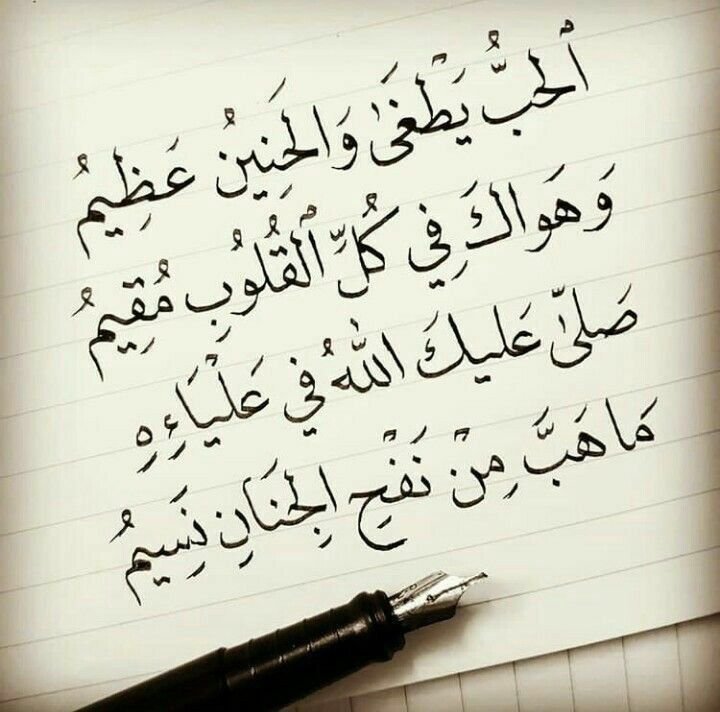 ٱلحُبُّ يَطْغَىٰ وَالحَنِينُ عَظِيمُ
وَهَواكَ فِي كُلِّ ٱلقُلُوبِ مُقِيمُ
صَلىّٰ عَليكَ اللهُ في عَلْيَاءِهِ
مَا هَبَّ مِنْ نَفْحِ الجَنَانِ نَسِيمُ